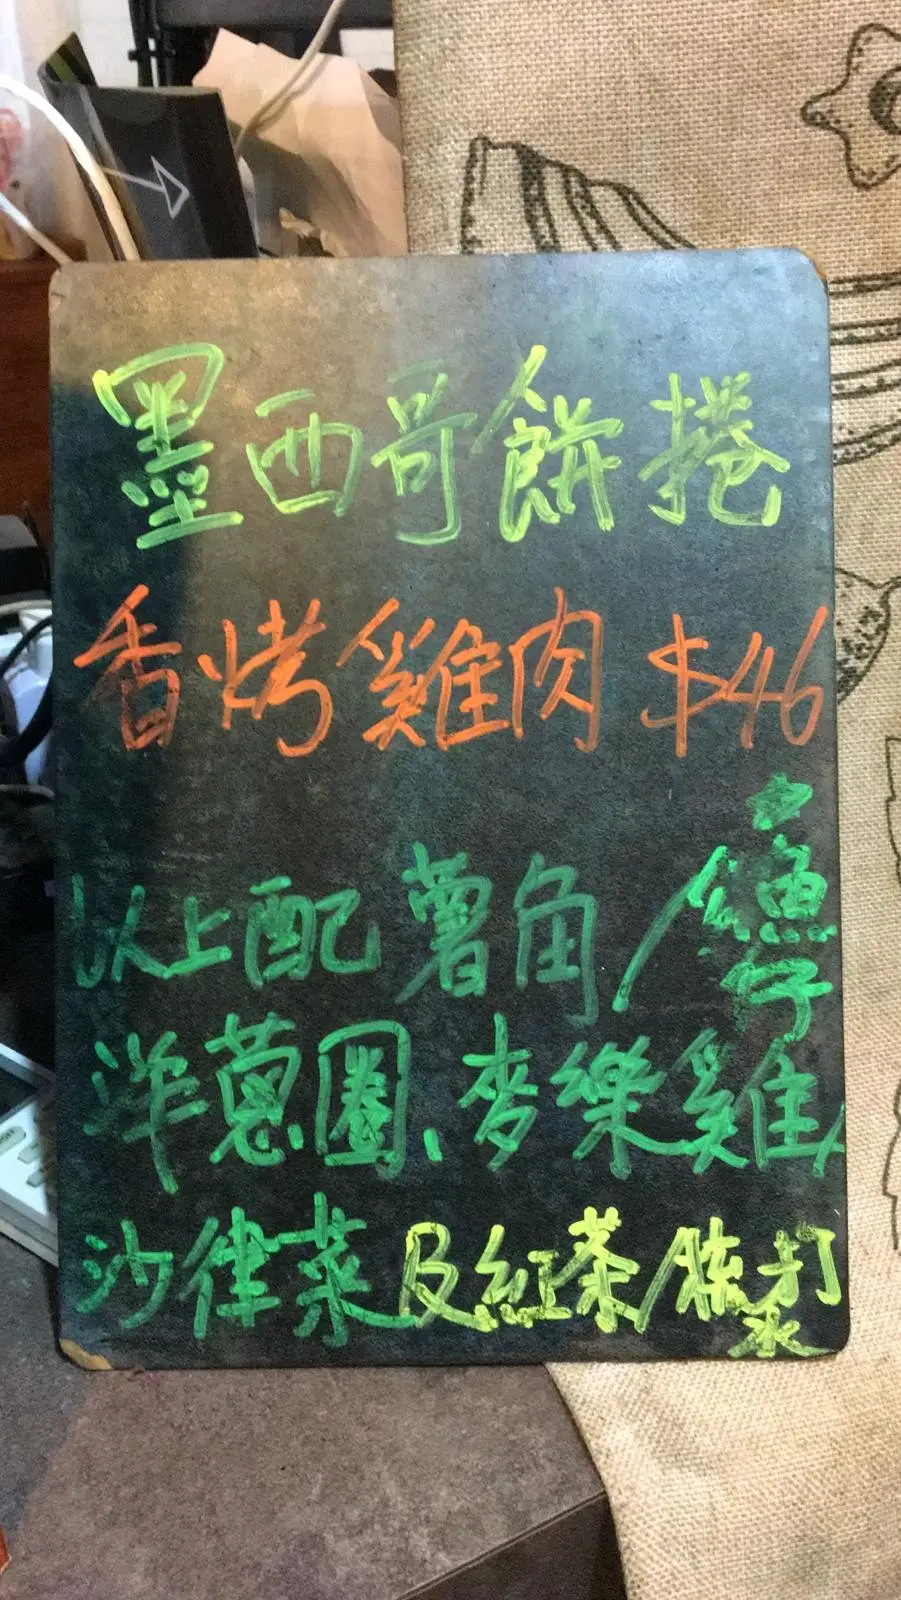 墨西哥餅捲
香烤雞肉 $46
以上配 薯角/魚仔
洋蔥圈、麥樂雞/
沙律菜及紅茶/梳打水